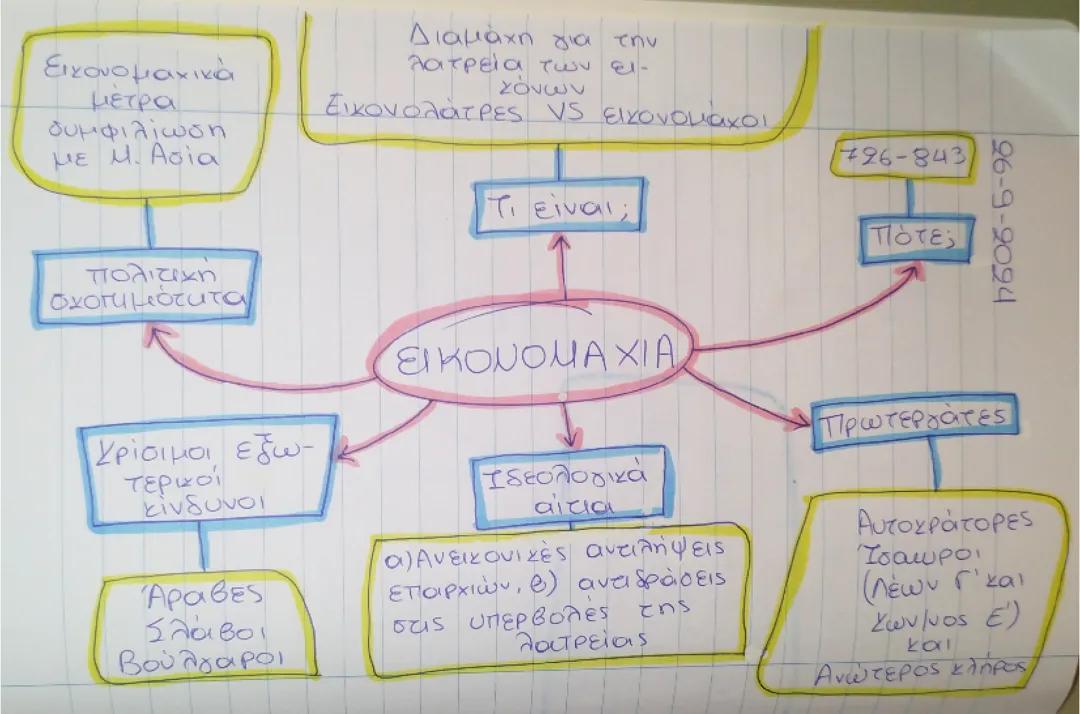 Διαμάχη για την
λατρεία των ει-
κόνων
Εικονολάτρες VS εικονομάχοι
Τι είναι;
Εικονομαχικά
μέτρα
συμφιλίωση
με Μ. Ασία
πολιτική
σκοπιμότητα
726-843
Πότε;
26-9-2024
ΕΙΚΟΝΟΜΑΧΙΑ
Κρίσιμοι εξω-
τερικοί
κίνδυνοι
Άραβες
Σλάβοι
Βούλγαροι
Ιδεολογικά
αίτια
α) Ανεικονικές αντιλήψεις
επαρχιών, β) αντιδράσεις
στις υπερβολές της
λατρείας
Πρωτεργάτες
Αυτοκράτορες
Ίσαυροι
(Λέων Γ' και
Κων/νος Ε')
και
Ανώτερος κλήρος